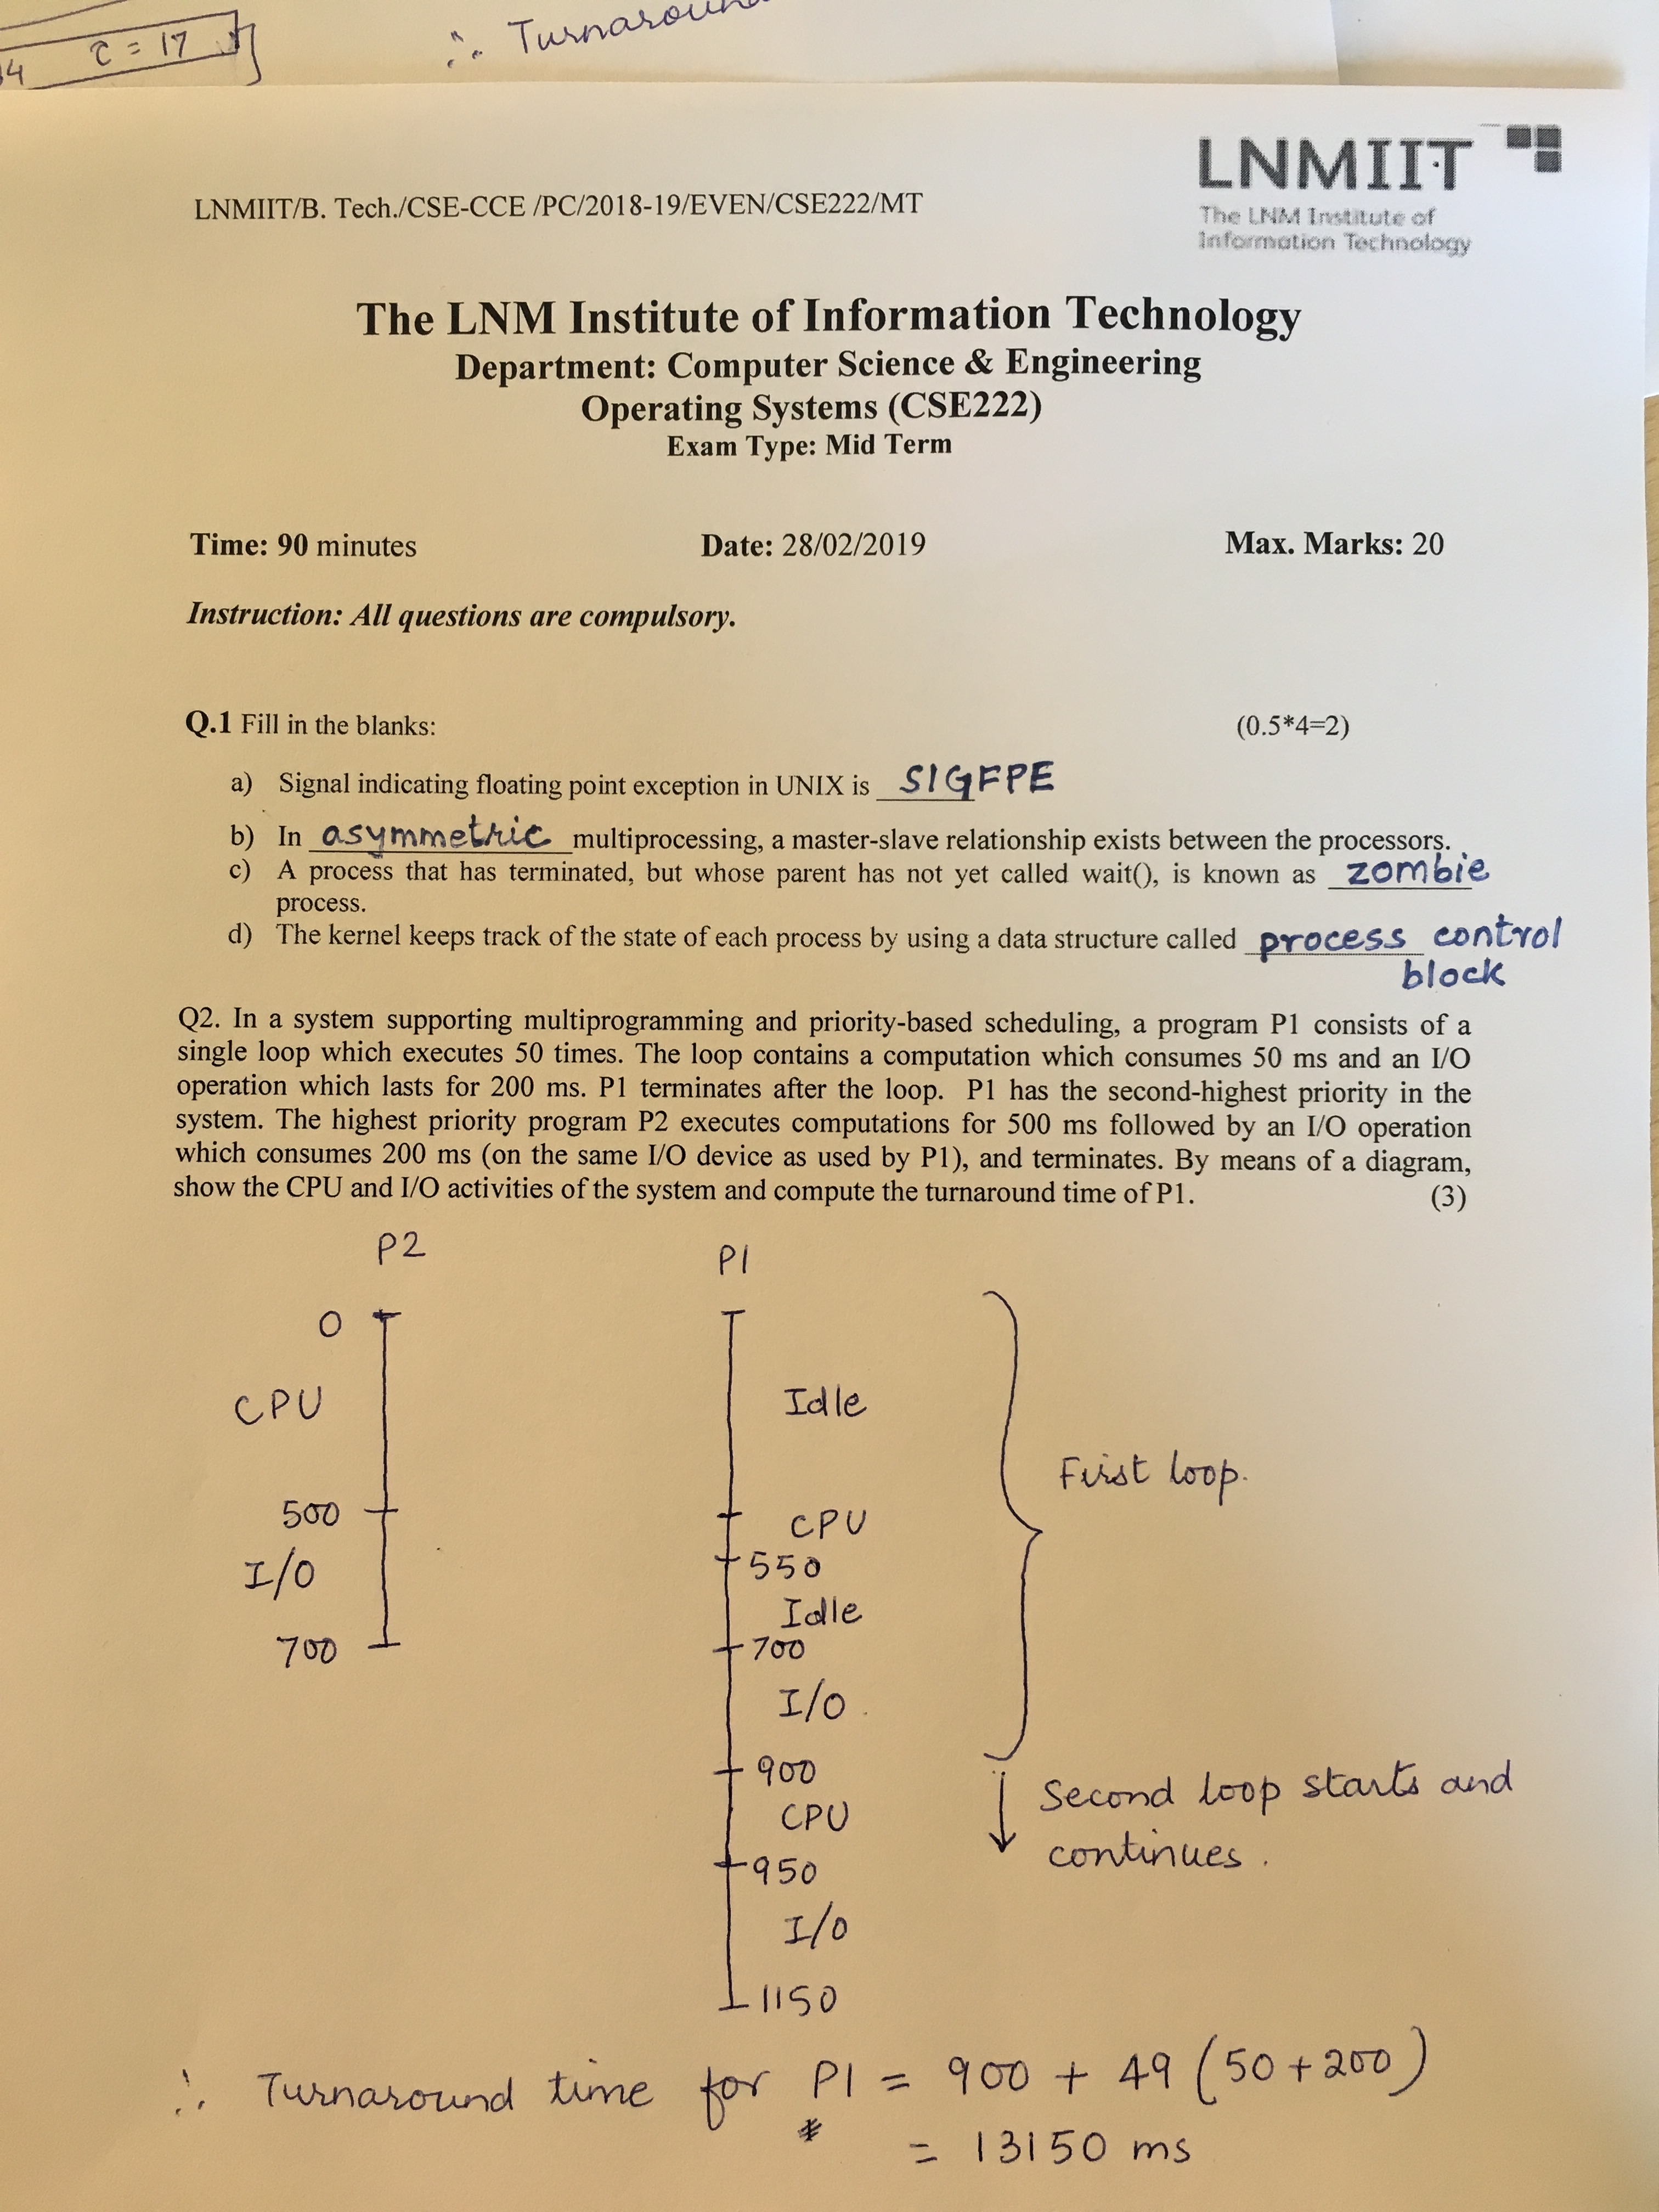 14 τ = 17
∴ Turnaround
LNMIIT
The LNM Institute of
Information Technology
LNMIIT/B. Tech./CSE-CCE /PC/2018-19/EVEN/CSE222/MT
The LNM Institute of Information Technology
Department: Computer Science & Engineering
Operating Systems (CSE222)
Exam Type: Mid Term
Time: 90 minutes Date: 28/02/2019 Max. Marks: 20
Instruction: All questions are compulsory.
Q.1 Fill in the blanks: (0.5*4=2)
a) Signal indicating floating point exception in UNIX is SIGFPE
b) In asymmetric multiprocessing, a master-slave relationship exists between the processors.
c) A process that has terminated, but whose parent has not yet called wait(), is known as zombie
process.
d) The kernel keeps track of the state of each process by using a data structure called process control
block
Q2. In a system supporting multiprogramming and priority-based scheduling, a program P1 consists of a
single loop which executes 50 times. The loop contains a computation which consumes 50 ms and an I/O
operation which lasts for 200 ms. P1 terminates after the loop. P1 has the second-highest priority in the
system. The highest priority program P2 executes computations for 500 ms followed by an I/O operation
which consumes 200 ms (on the same I/O device as used by P1), and terminates. By means of a diagram,
show the CPU and I/O activities of the system and compute the turnaround time of P1. (3)
P2 P1
0
CPU Idle
First loop.
500 CPU
I/O 550
Idle
700 700
I/O
900 Second loop starts and
CPU
950 continues.
I/O
1150
∴ Turnaround time for P1 = 900 + 49 (50+200)
= 13150 ms